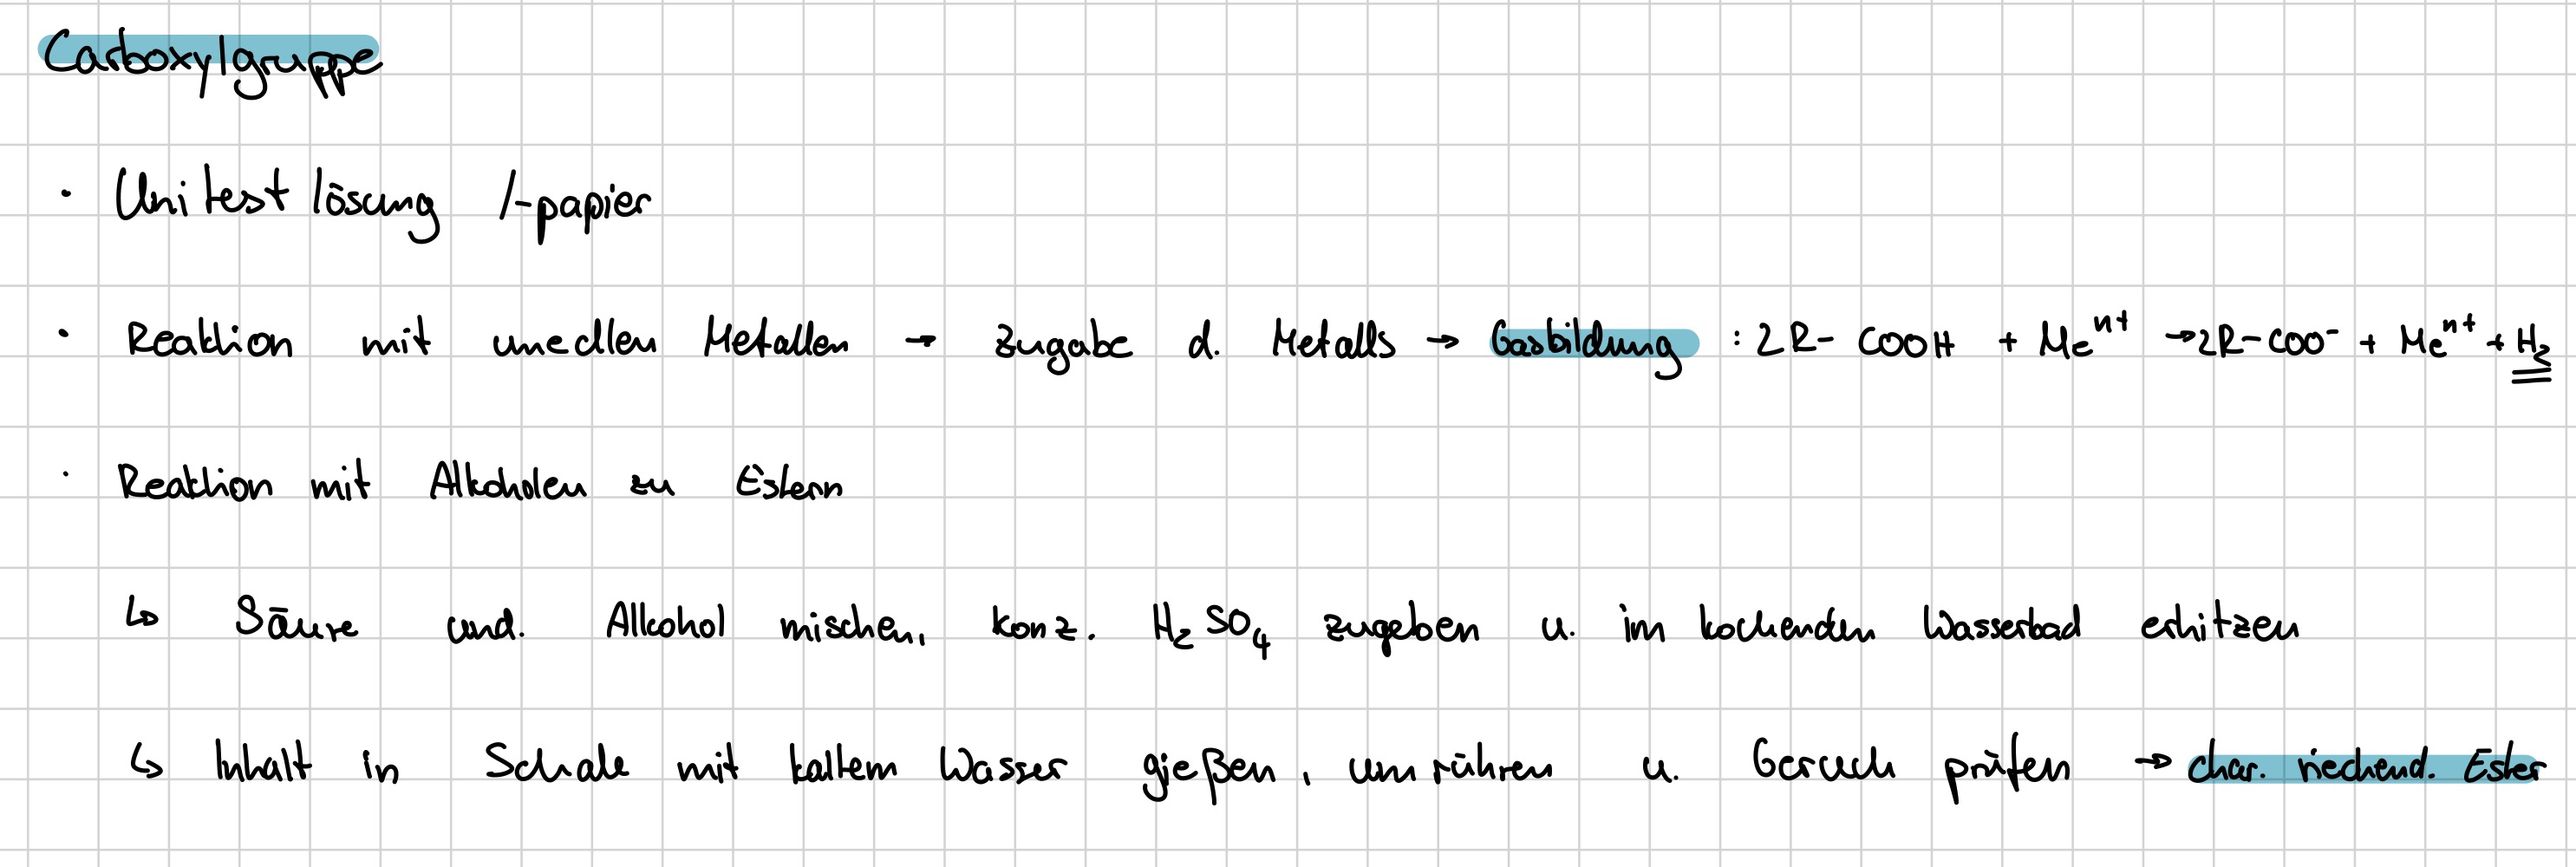 Carboxylgruppe
· Unitestlösung /-papier
· Reaktion mit unedlen Metallen → Zugabe d. Metalls → Gasbildung : 2R-COOH + Meⁿ⁺ → 2R-COO⁻ + Meⁿ⁺ + H₂
· Reaktion mit Alkoholen zu Estern
↳ Säure und. Alkohol mischen, konz. H₂SO₄ zugeben u. im kochenden Wasserbad erhitzen
↳ Inhalt in Schale mit kaltem Wasser gießen, umrühren u. Geruch prüfen → char. riechend. Ester